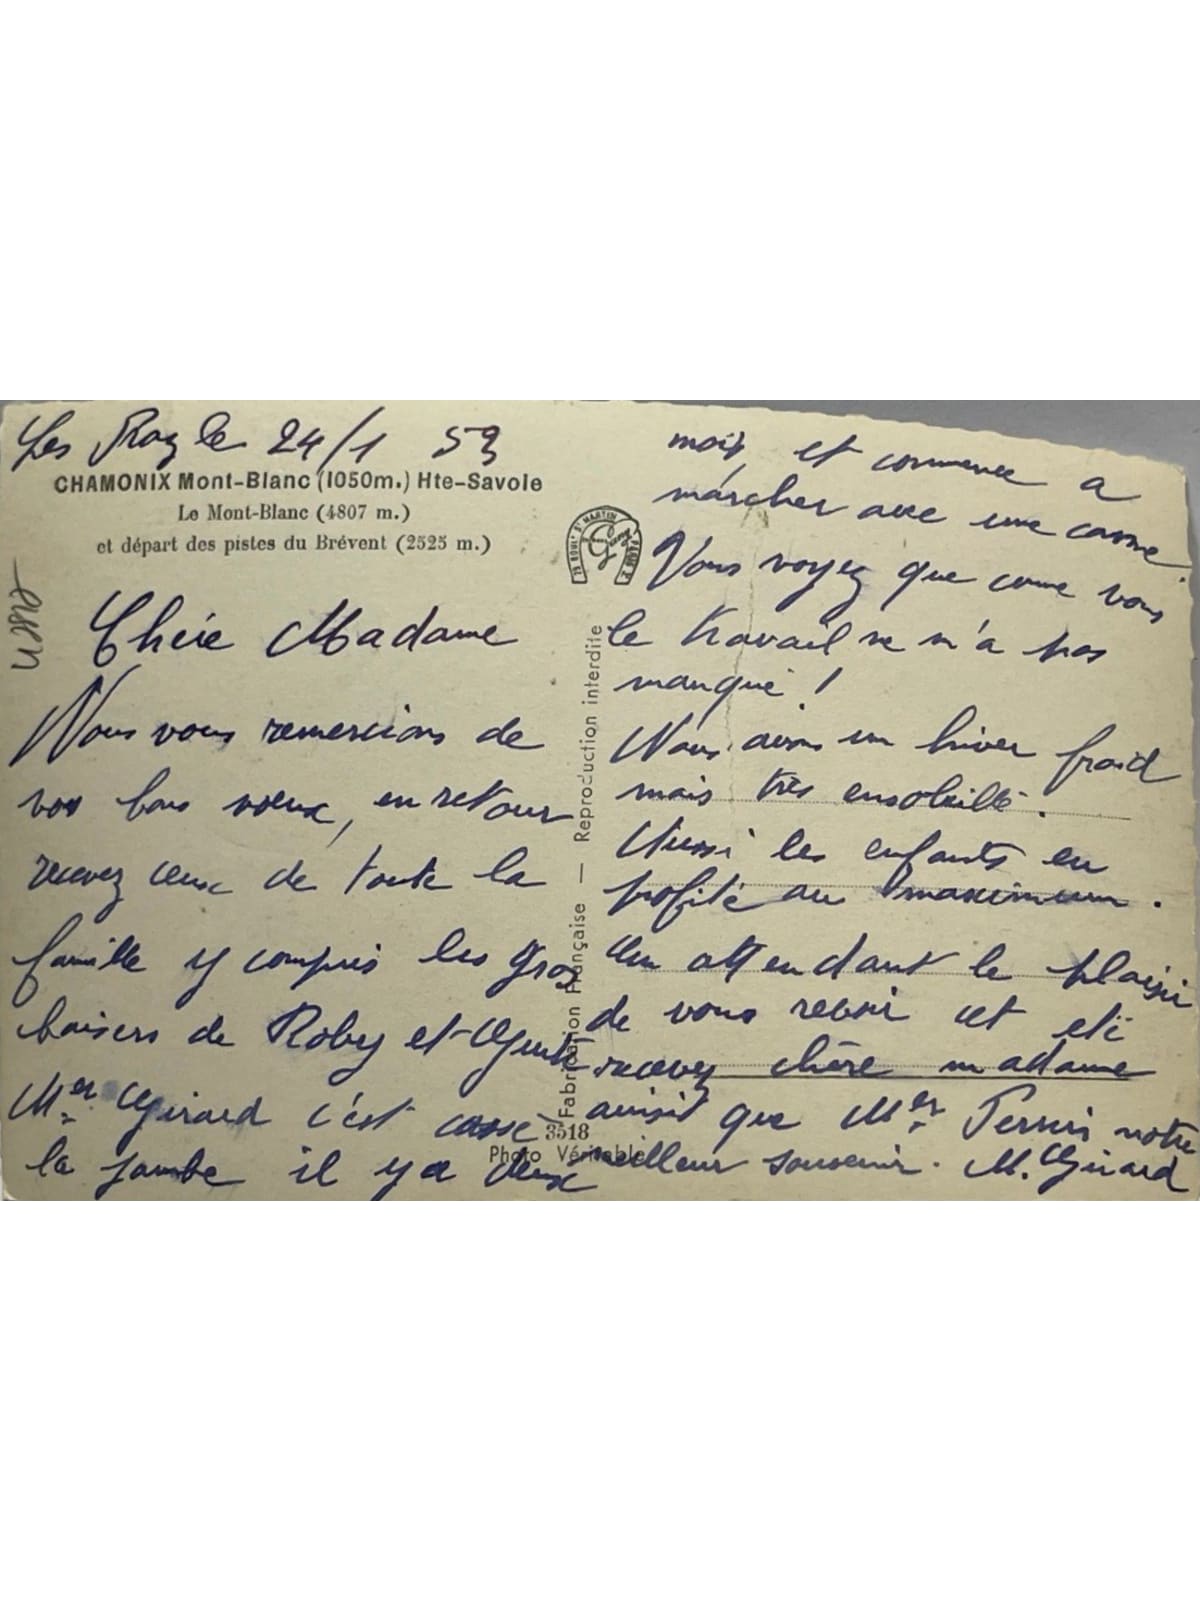 Les Roz le 24/1 53
CHAMONIX Mont-Blanc (1050m.) Hte-Savoie
Le Mont-Blanc (4807 m.)
et départ des pistes du Brévent (2525 m.)
Chére Madame
Nous vous remercions de
vos bons voeux, en retour
recevez ceux de toute la
famille y compris les gros
baisers de Roby et
Mer Girard c'est cassé
la jambe il y a deux
mois, et commence a
marcher avec une canne.
Vous voyez que come vous
le travail ne m'a pas
manqué !
Nous avons un hiver froid
mais très ensoleillé.
Aussi les enfants en
profite au maximum.
En attendant le plaisir
de vous revoir cet eté
recevez chère madame
ainsit que Mer Perrin notre
meilleur souvenir. M. Girard
29 BOULd St MARTIN PARIS 3e
Fabrication Française — Reproduction interdite
3518
Photo Véritable